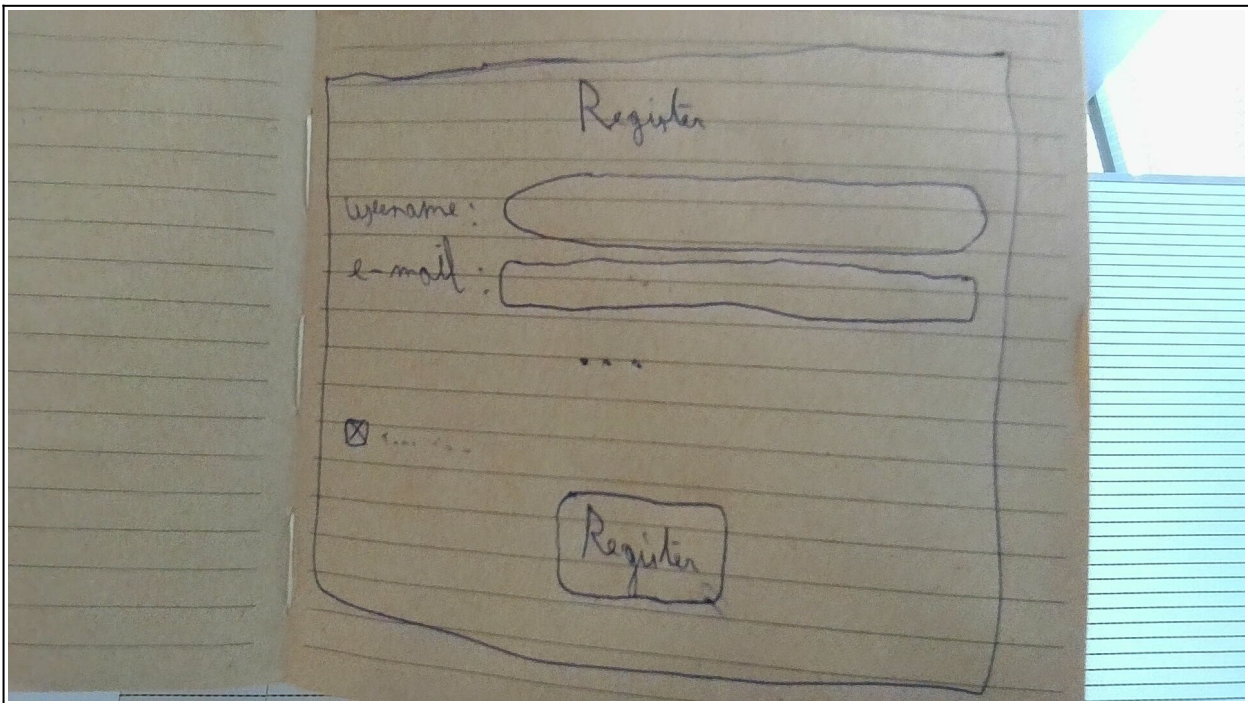 Register
username :
e-mail :
...
Register